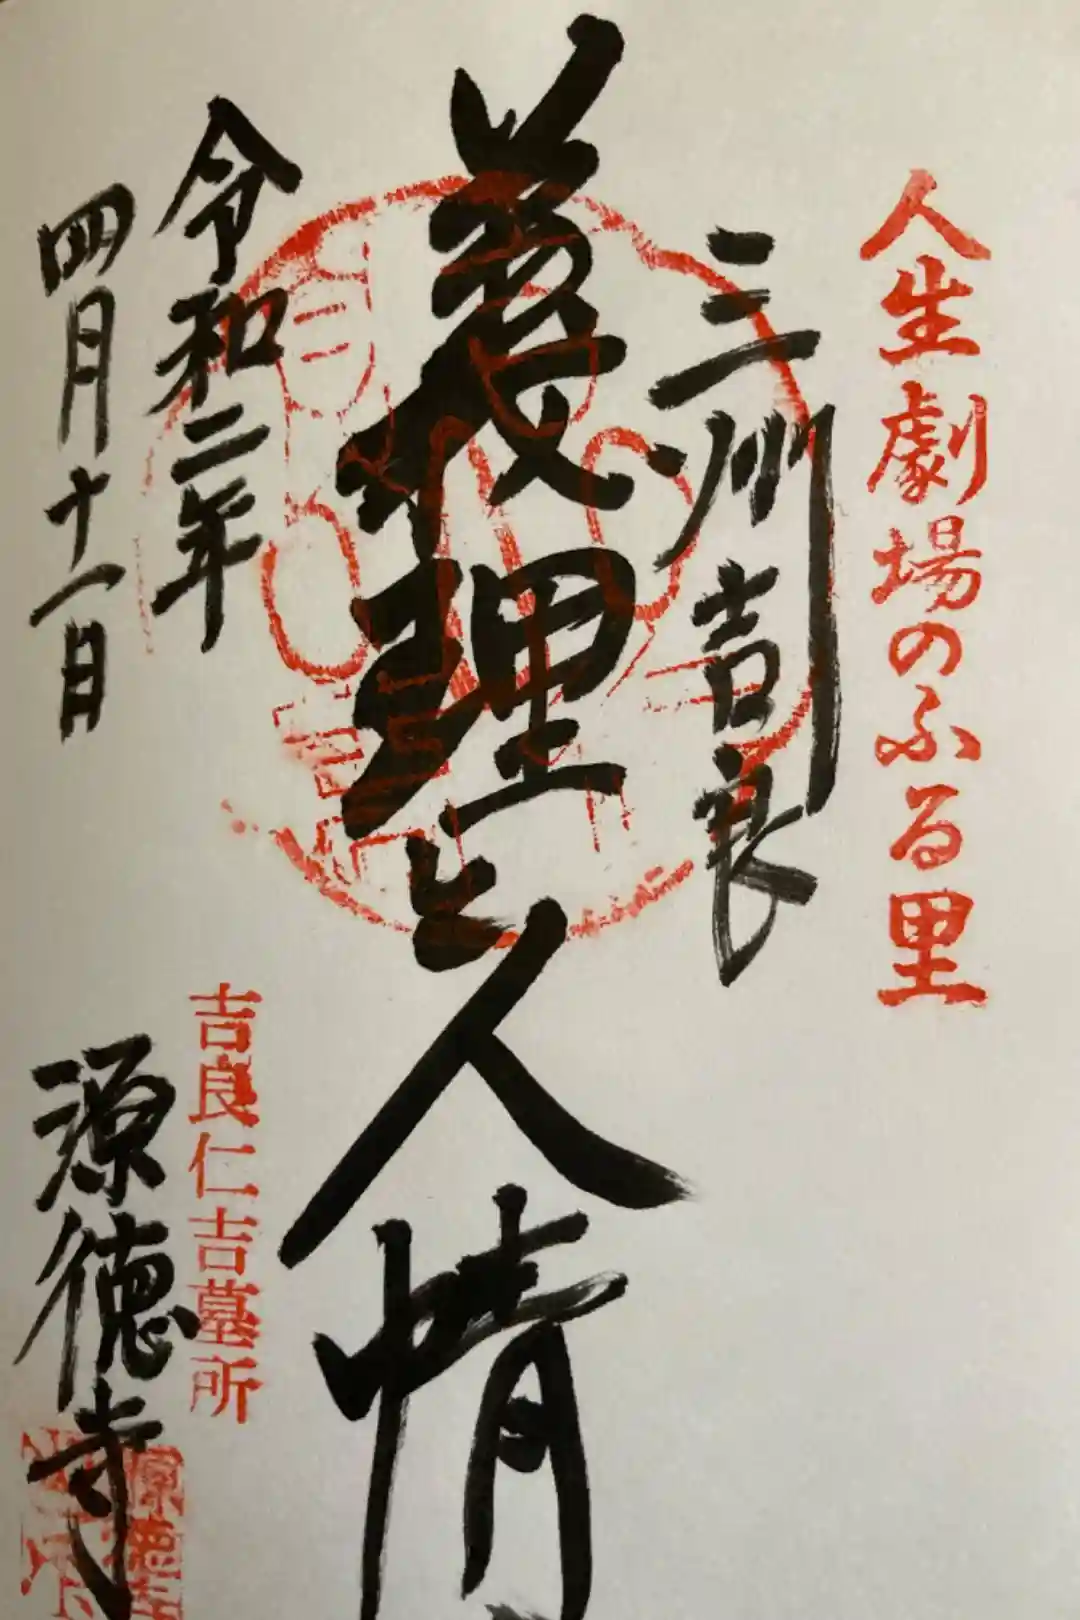 人生劇場のふる里
三州吉良
義理と人情
令和二年
四月十一日
吉良仁吉墓所
源徳寺